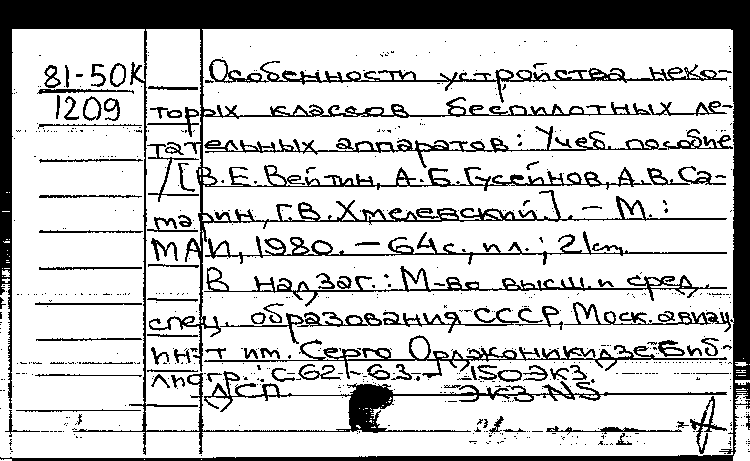 81-50К
1209
Особенности устройства неко-
торых классов беспилотных ле-
тательных аппаратов: Учеб. пособие
/[В.Е.Вейтин, А.Б.Гусейнов, А.В.Са-
тарин, Г.В.Хмелевский]. – М.:
МАИ, 1980. – 64с., ил.; 21cm.
В надзаг.: М-во высш. и сред.
спец. образования СССР, Моск. авиац.
ин-т им. Серго Орджоникидзе. Биб-
лиогр.: с. 62-63. – 150 экз.
ДСП. Экз. №5.